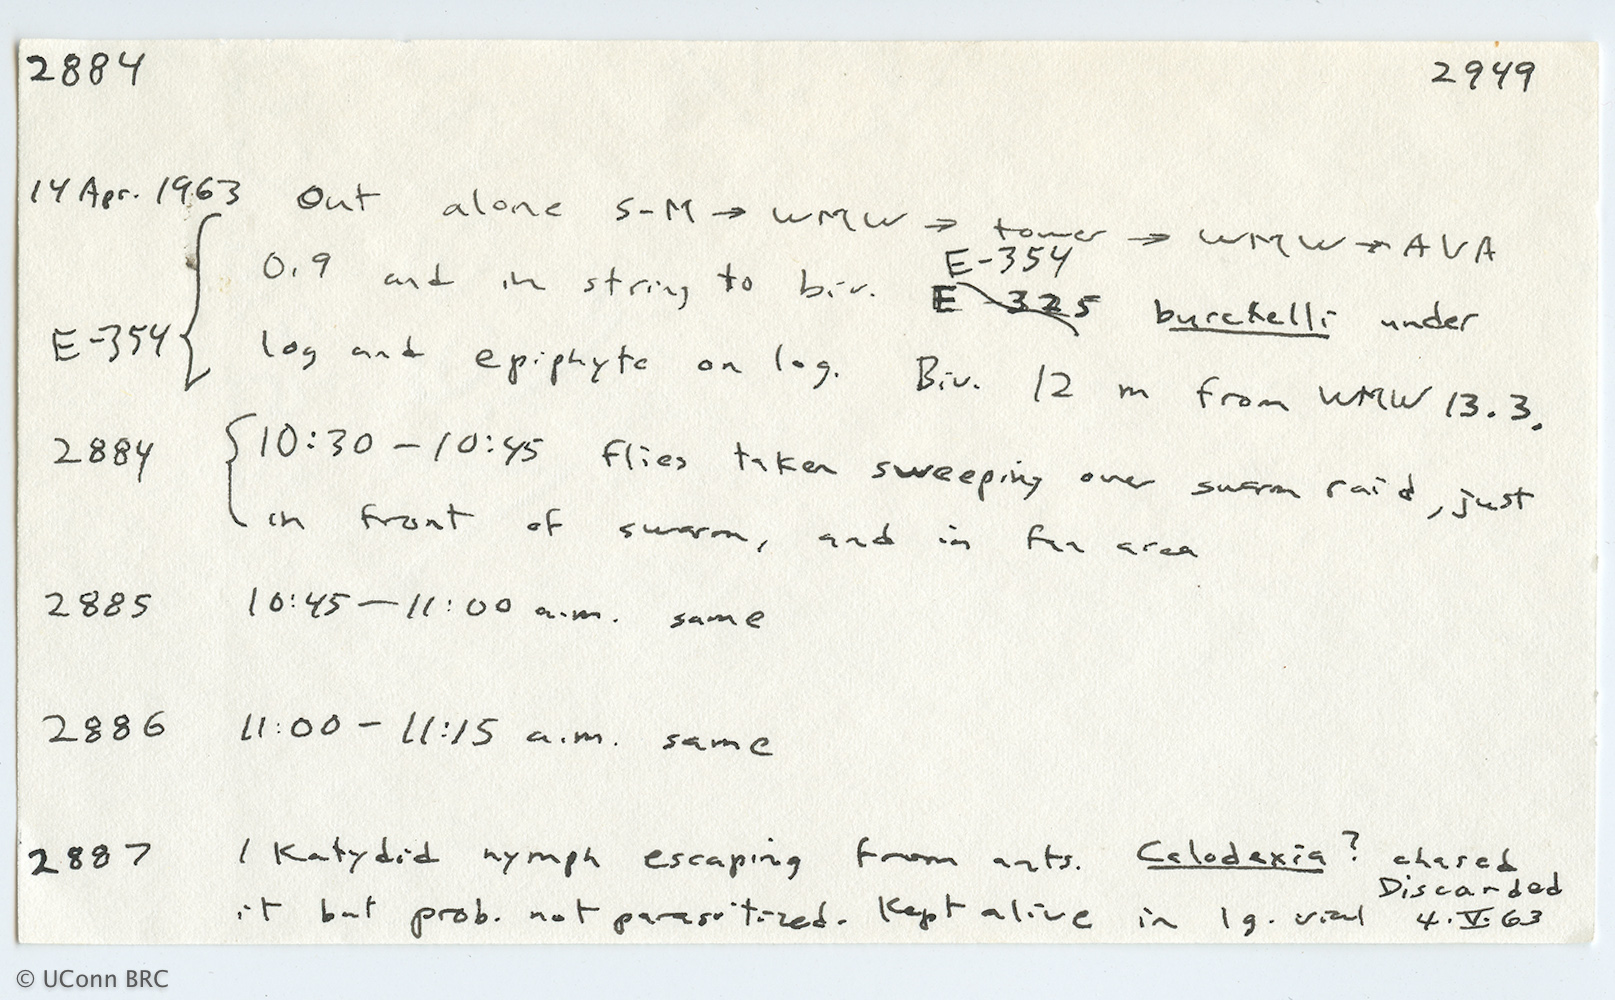 2884 2949
14 Apr. 1963 Out alone S-M → WMW → tower → WMW → AVA
E-354
0.9 and in string to biv. E-325 burchelli under
E-354 log and epiphyte on log. Biv. 12 m from WMW 13.3.
2884 10:30 - 10:45 flies taken sweeping over swarm raid, just
in front of swarm, and in fan area
2885 10:45 - 11:00 a.m. same
2886 11:00 - 11:15 a.m. same
2887 1 Katydid nymph escaping from ants. Calodexia? chased
Discarded
it but prob. not parasitized. Kept alive in lg. vial 4.V.63
© UConn BRC